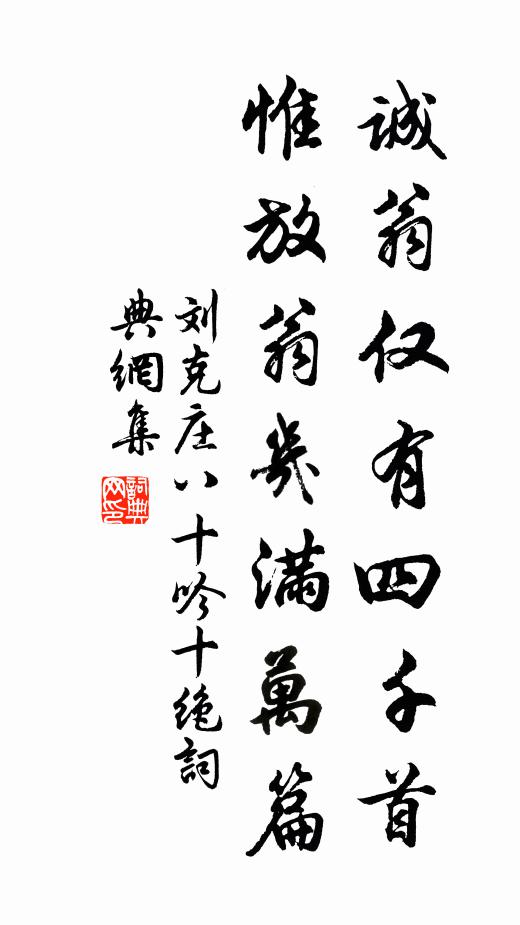 誠翁仅有四千首
惟放翁幾满萬篇
刘克庄八十吟十绝詞
典網集
詞典
网印